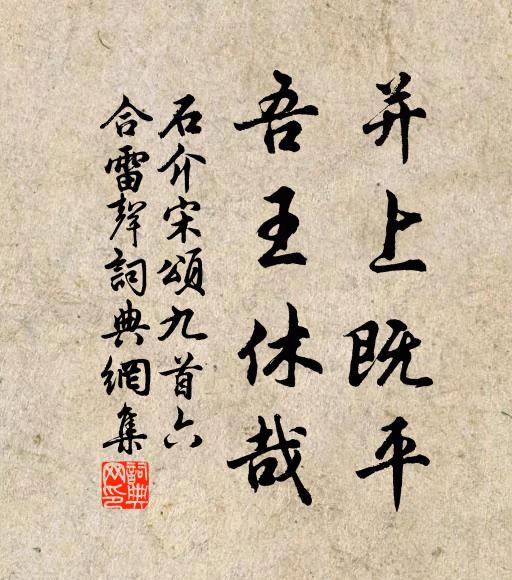 并上既平
吾王休哉
石介宋頌九首六
合雷聲詞典網集
詞典网印